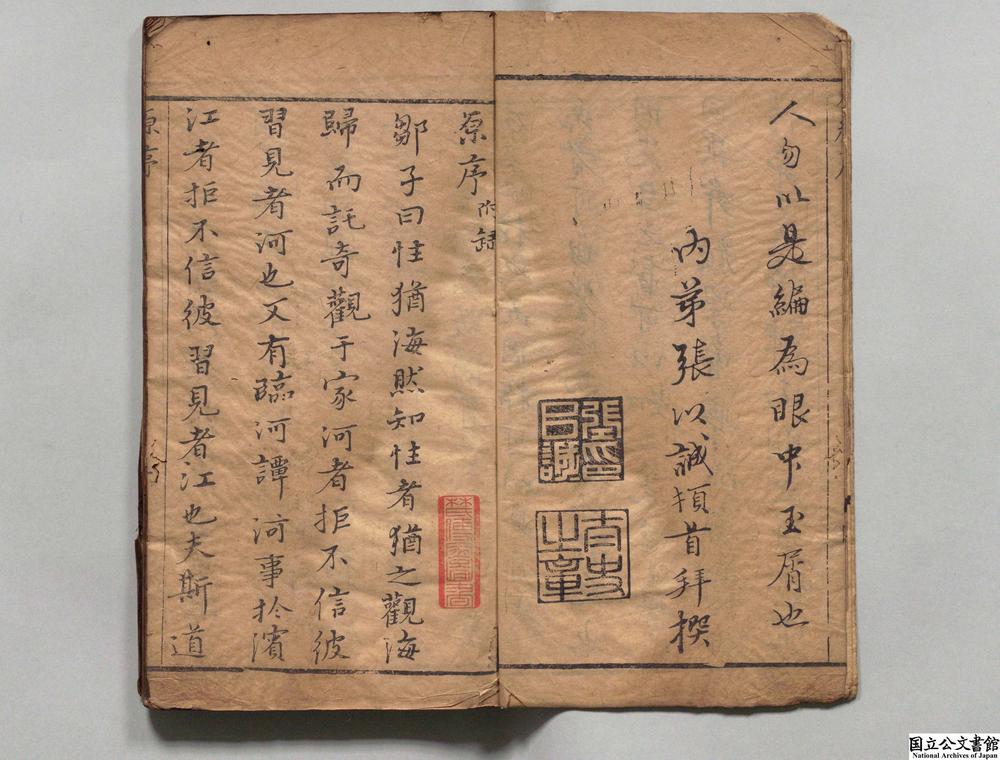 人勿以是編為眼中玉屑也
內弟張以誠頓首拜撰
張以誠印
太史之章
原序附錄
鄒子曰性猶海然知性者猶之觀海
歸而託奇觀于家河者拒不信彼
習見者河也又有臨河譚河事於濱
江者拒不信彼習見者江也夫斯道
原序
国立公文書館
National Archives of Japan